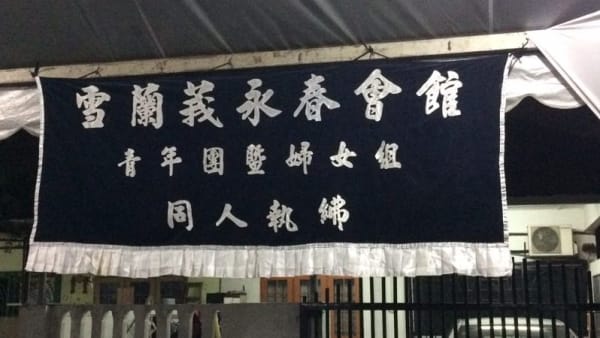 雪蘭莪永春會館
青年團暨婦女組
同人執紼